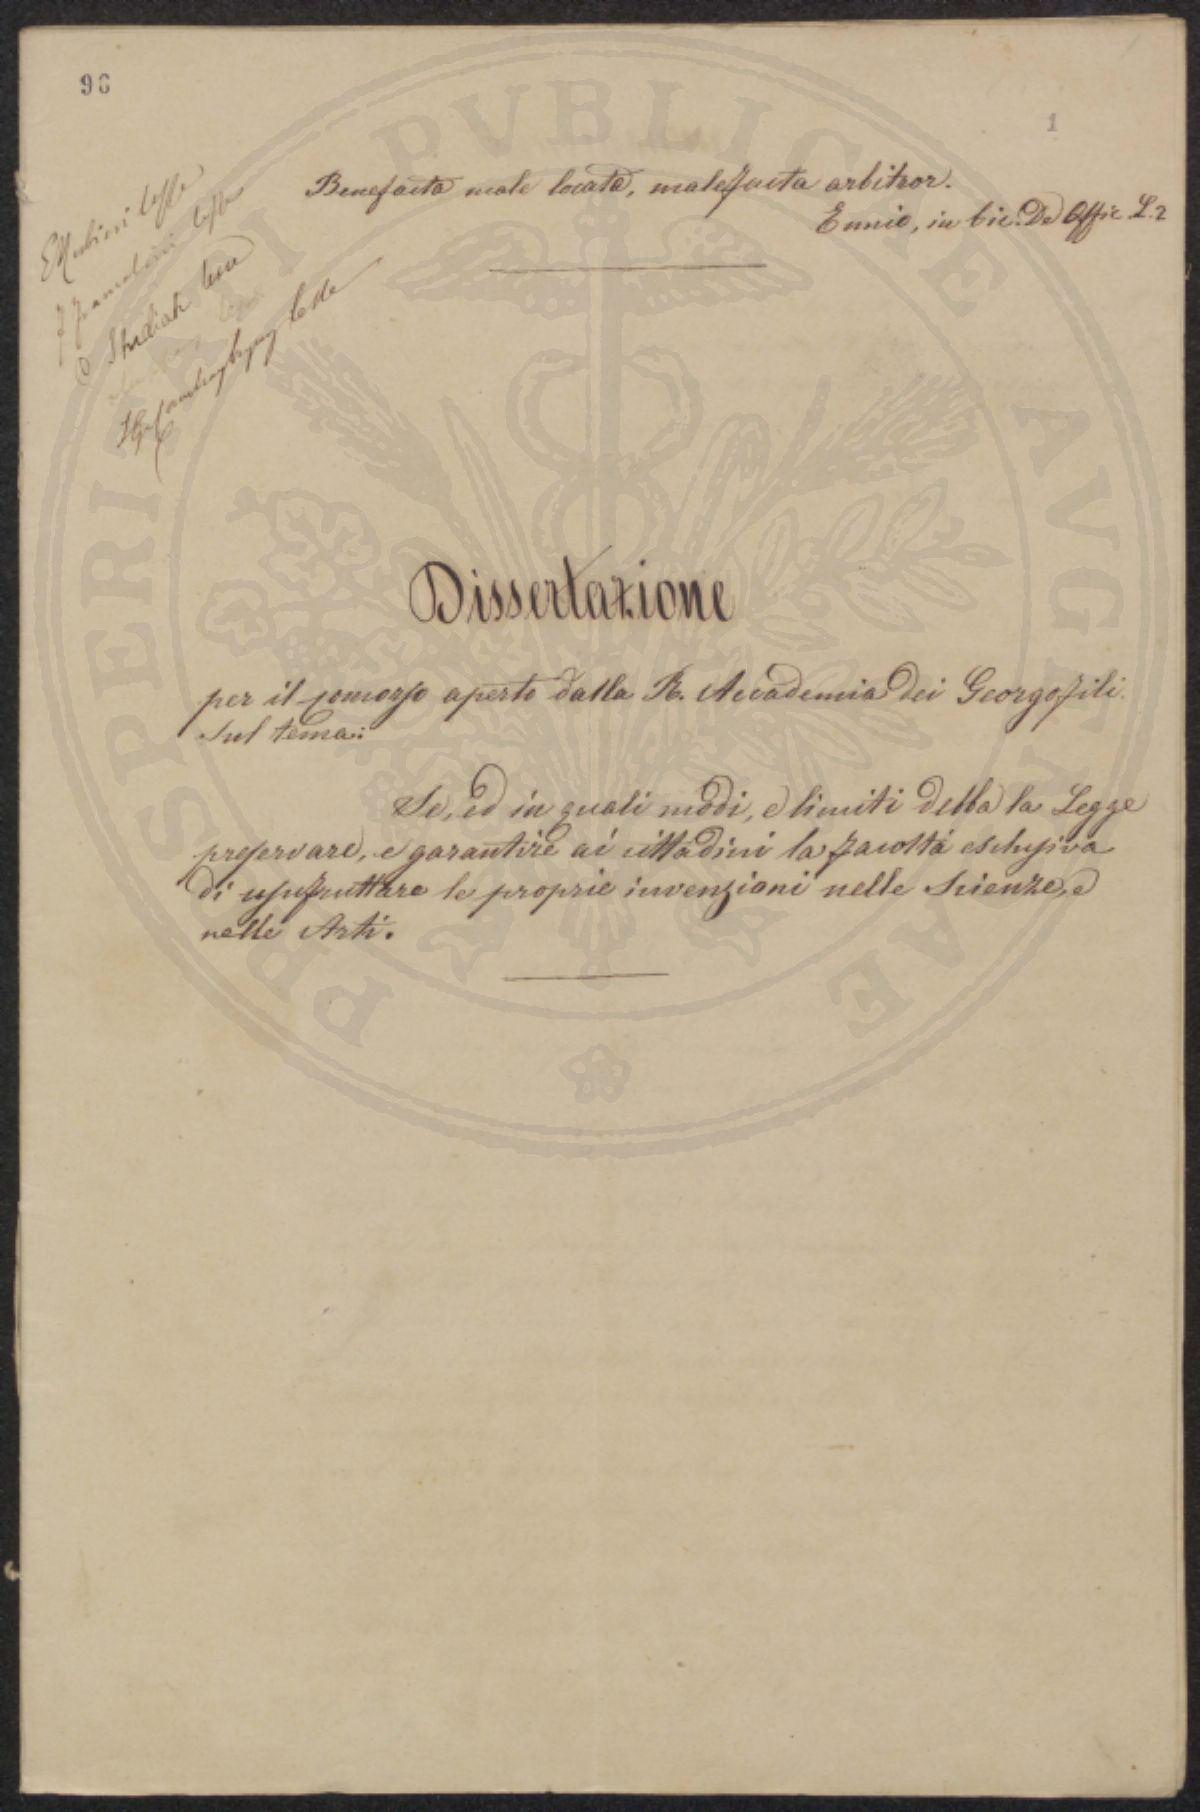 96
1
Benefacta male locata, malefacta arbitror.
Ennio, in Cic. De Offic L. 2
E Rubieri lesse
lesse
C
lesse
Dissertazione
per il concorso aperto dalla R. Accademia dei Georgofili
sul tema:
Se, ed in quali modi, e limiti debba la Legge
preservare, e garantire ai cittadini la facoltà esclusiva
di usufruttare le proprie invenzioni nelle Scienze, e
nelle Arti.
PROSPERITATI PVBLICAE AVGENDAE